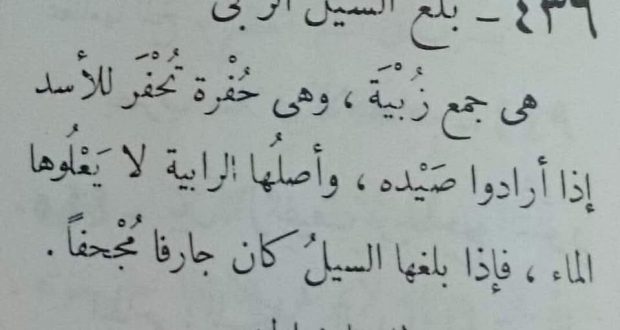 ٤٣٦ - بلغ السيل الزبى
هى جمع زُبْيَة ، وهى حُفْرة تُحْفَر للأسد
إذا أرادوا صَيْده ، وأصلُها الرابية لا يَعْلُوها
الماء ، فإذا بلغها السيلُ كان جارفا مُجْحفاً .